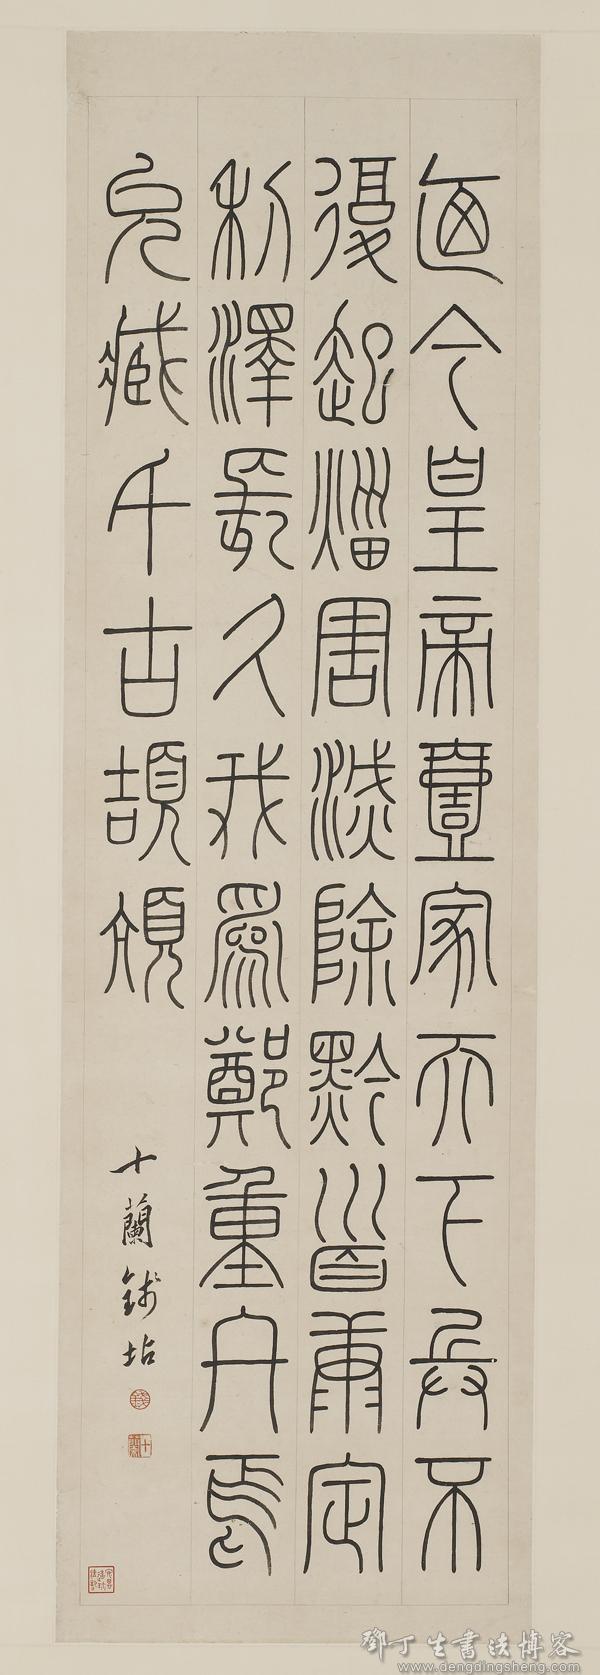 廼今皇帝壹家天下兵不
復起災害滅除黔首康定
利澤長久我為鄭重
藏千古頡頏
十蘭錢坫
十蘭
鄧丁生書法博客
www.dengdingsheng.com